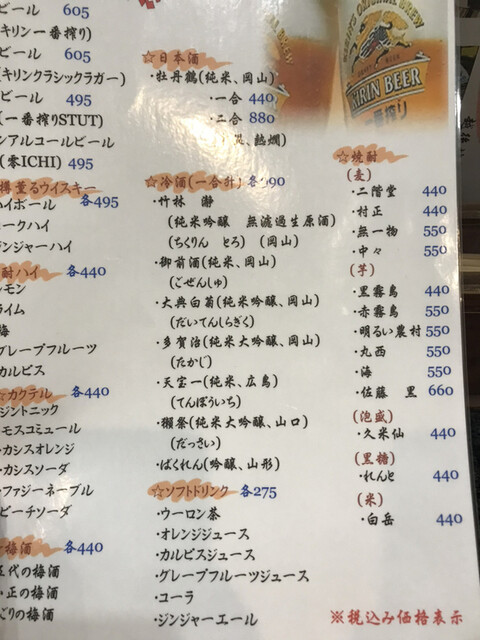 ビール 605
キリン一番搾り)
ビール 605
(キリンクラシックラガー)
ビール 495
一番搾りSTUT)
ンアルコールビール
(零ICHI) 495
樽薫るウイスキー
ハイボール 各495
ークハイ
ジンジャーハイ
酎ハイ 各440
レモン
ライム
梅
グレープフルーツ
カルピス
☆カクテル 各440
ジントニック
モスコミュール
・カシスオレンジ
・カシスソーダ
・ファジーネーブル
ピーチソーダ
梅酒 各440
五代の梅酒
・正の梅酒
ごりの梅酒
☆日本酒
・牡丹鶴(純米、岡山)
・一合 440
・二合 880
、熱燗)
☆冷酒(一合計) 各990
・竹林 瀞
(純米吟醸 無濾過生原酒)
(ちくりん とろ) (岡山)
・御前酒(純米、岡山)
(ごぜんしゅ)
・大典白菊(純米吟醸、岡山)
(だいてんしらぎく)
・多賀治(純米大吟醸、岡山)
(たかじ)
・天宝一(純米、広島)
(てんぽういち)
・獺祭(純米大吟醸、山口)
(だっさい)
・ばくれん(吟醸、山形)
☆ソフトドリンク 各275
・ウーロン茶
・オレンジジュース
・カルピスジュース
・グレープフルーツジュース
・コーラ
・ジンジャーエール
KIRIN BEER
一番搾り
☆焼酎
(麦)
・二階堂 440
・村正 440
・無一物 550
・中々 550
(芋)
・黒霧島 440
・赤霧島 550
・明るい農村 550
・丸西 550
・海 550
・佐藤 黒 660
(泡盛)
・久米仙 440
(黒糖)
・れんと 440
(米)
・白岳 440
※税込み価格表示